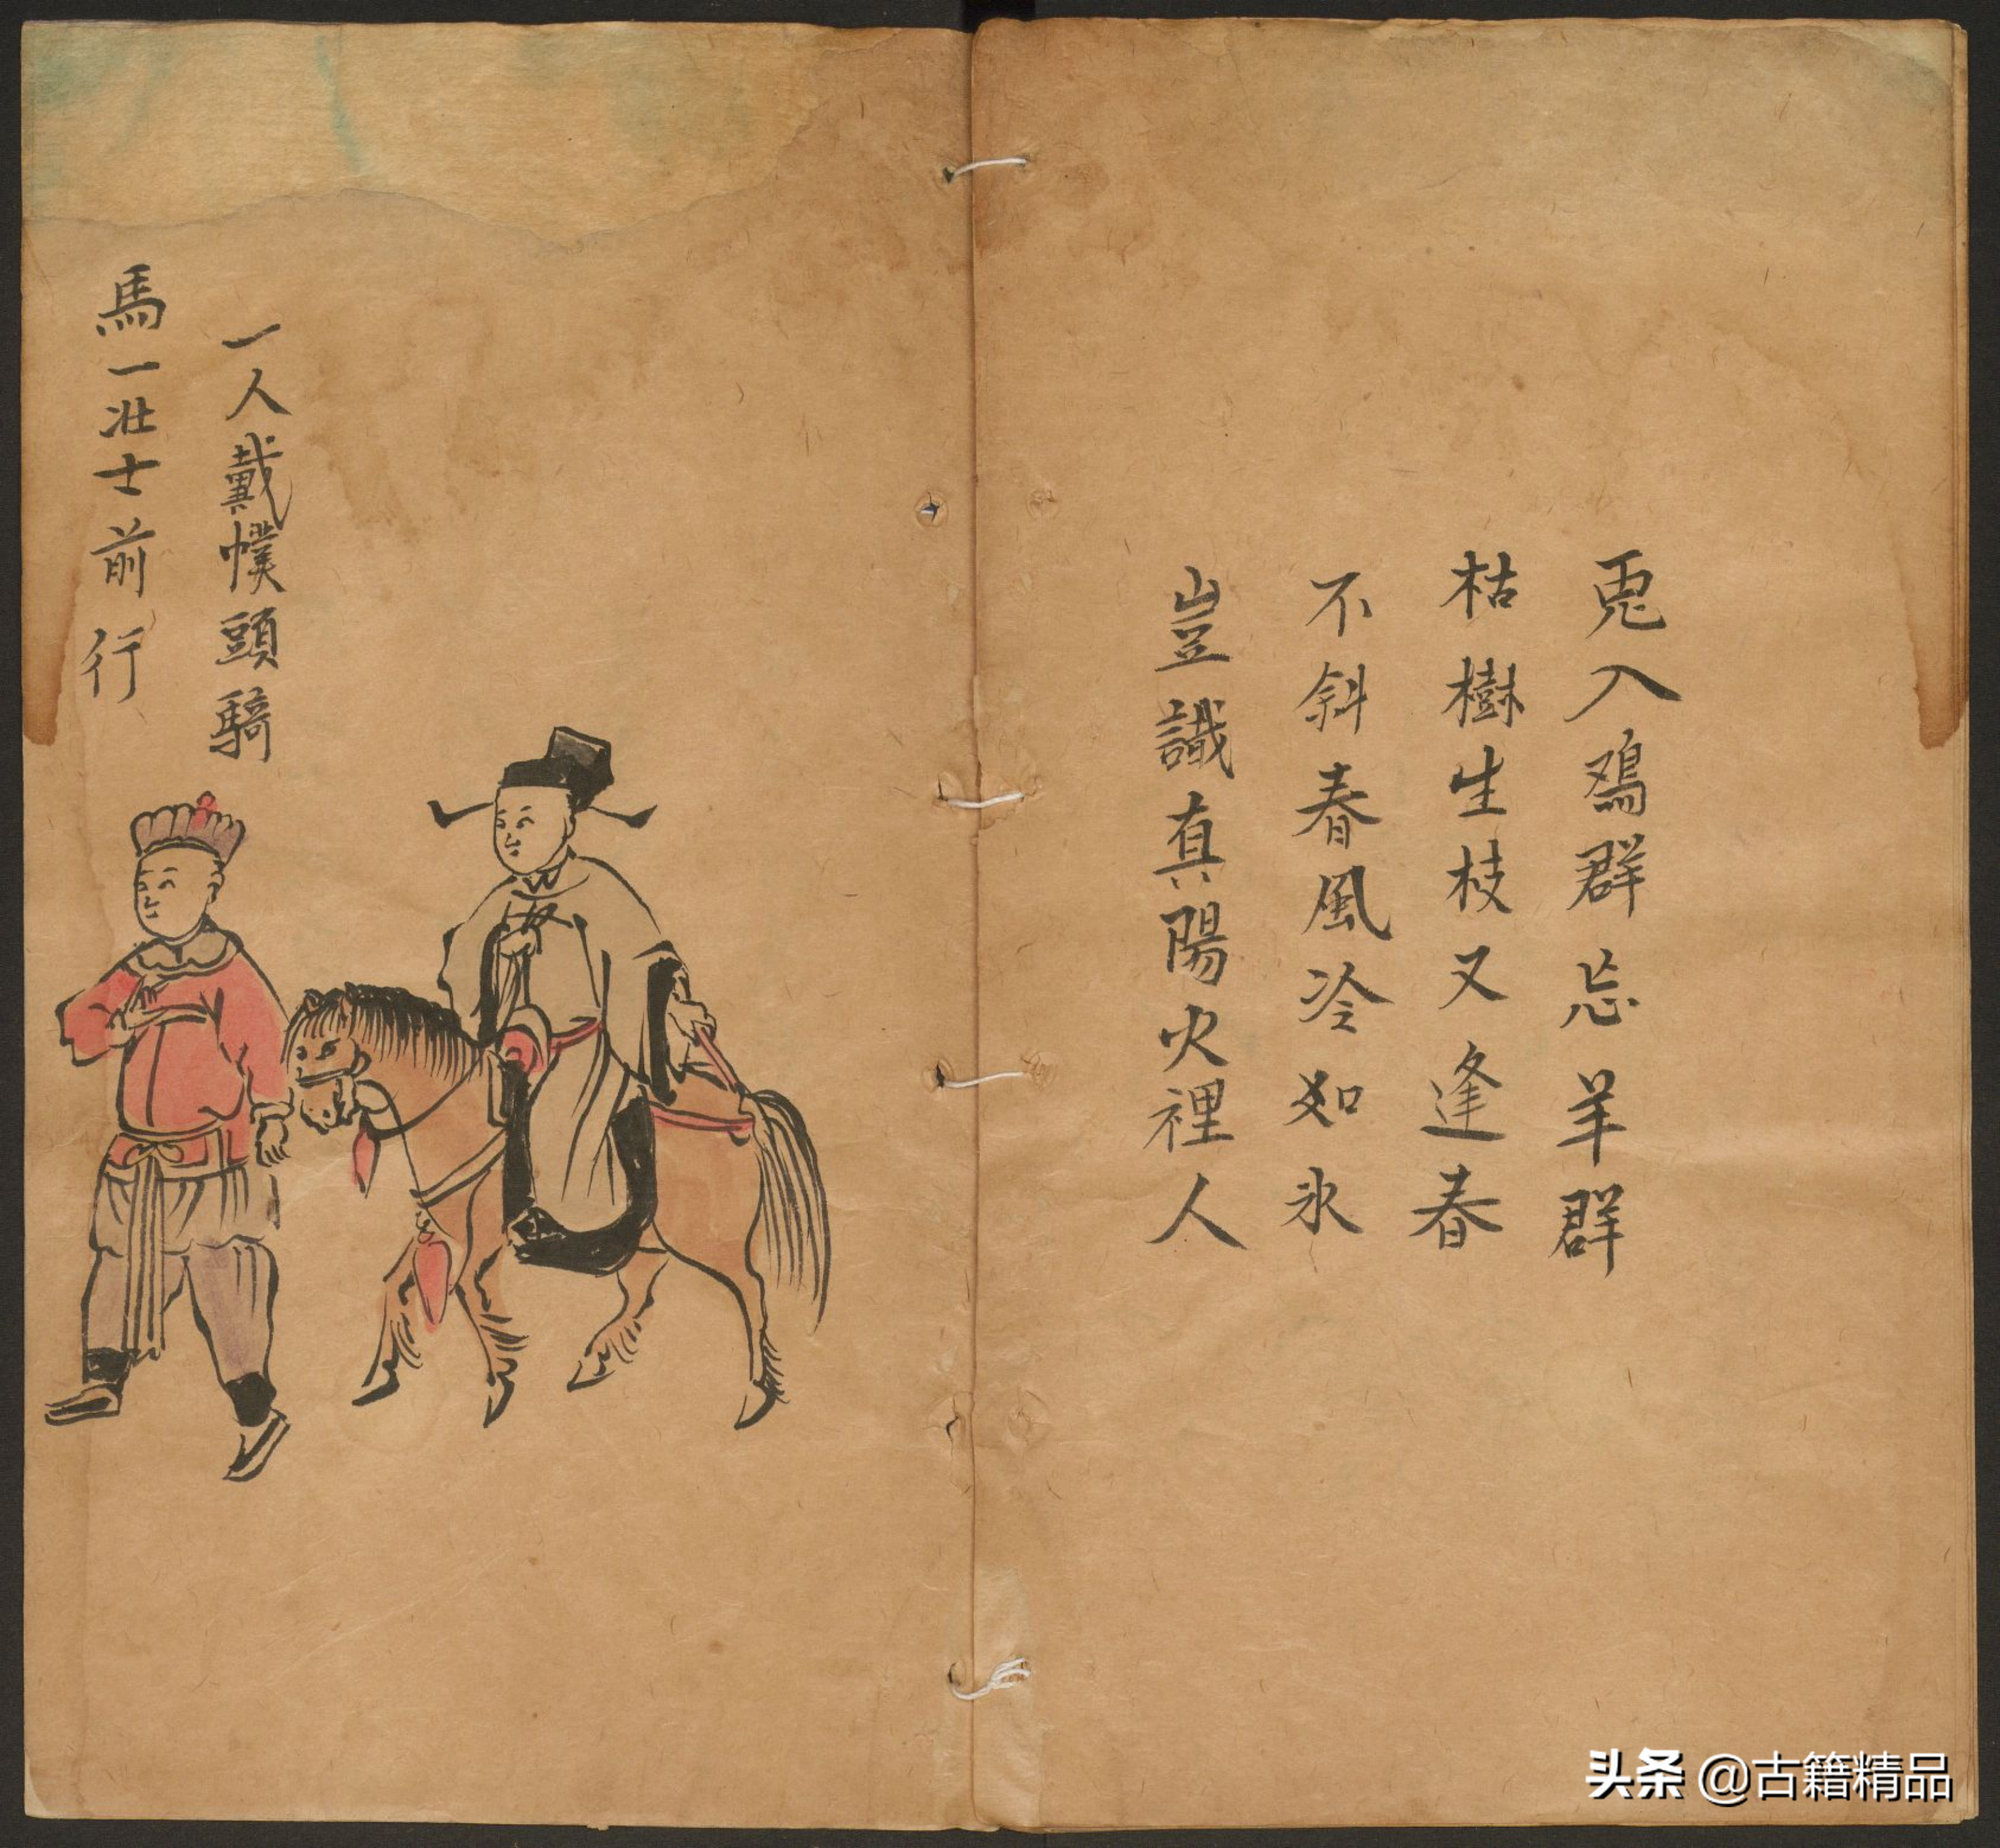 兎入鳮群忘羊群
枯樹生枝又逢春
不斜春風冷如氷
豈識真陽火裡人
一人戴幞頭騎
馬一壮士前行
头条 @古籍精品